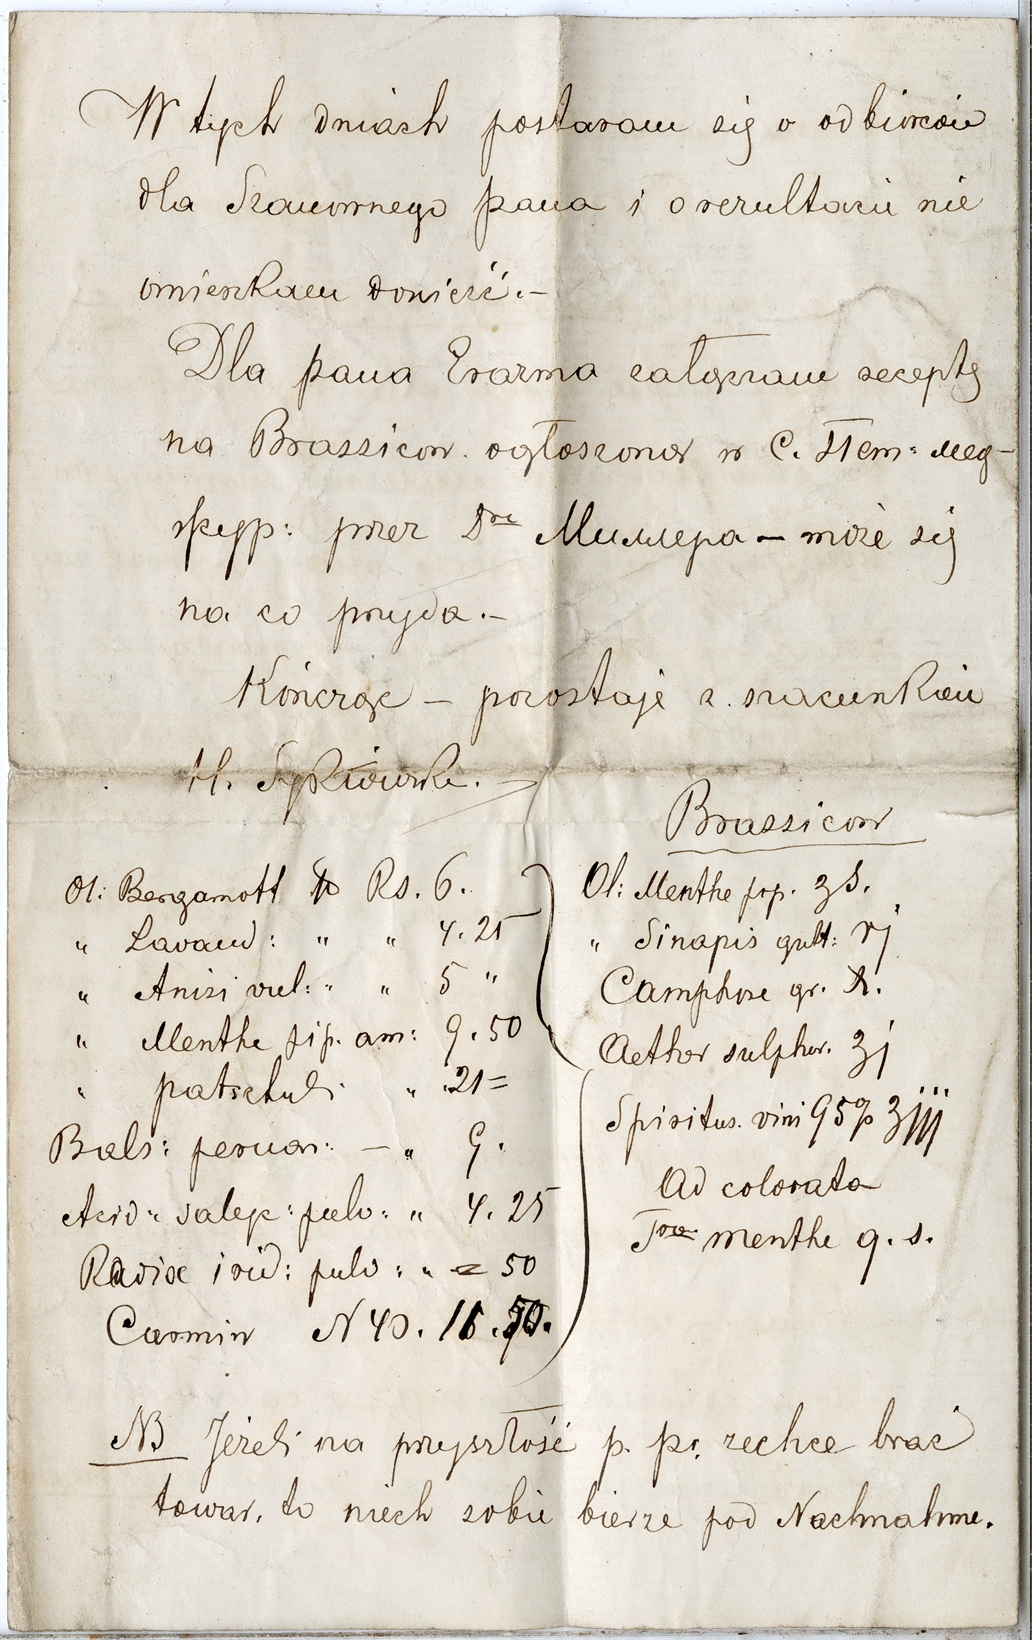 W tych dniach postaram się o odbiorców
dla Szanownego pana i o rezultacie nie
omieszkam donieść.—
Dla pana Erazma załączam receptę
na Brassicon ogłoszoną w С. Пет: мед-
przez Dra Миллера — może się
na co przyda.—
Kończąc — pozostaję z szacunkiem
H.
Brassicon
Ol: Bergamott ℔ Rs. 6.
" Lavand: " " 4.25
" Anisi " 5 "
" Menthe pip. am: 9.50
" patschuli " 21=
Bals: peruv: — " 9.
Acid: salic: pulv: " 4.25
Radix irid: pulv: " = 50
Carmin N 40.
Ol: Menthe pip. ʒ s.
" Sinapis gutt:
Camphore gr.
Aether sulphur. ʒj
Spiritus. vini 95% ʒjjj
Ad colorata
Tra menthe q. s.
NB Jeżeli na przyszłość p. pr. zechce brać
towar, to niech sobie bierze pod Nachnahme.